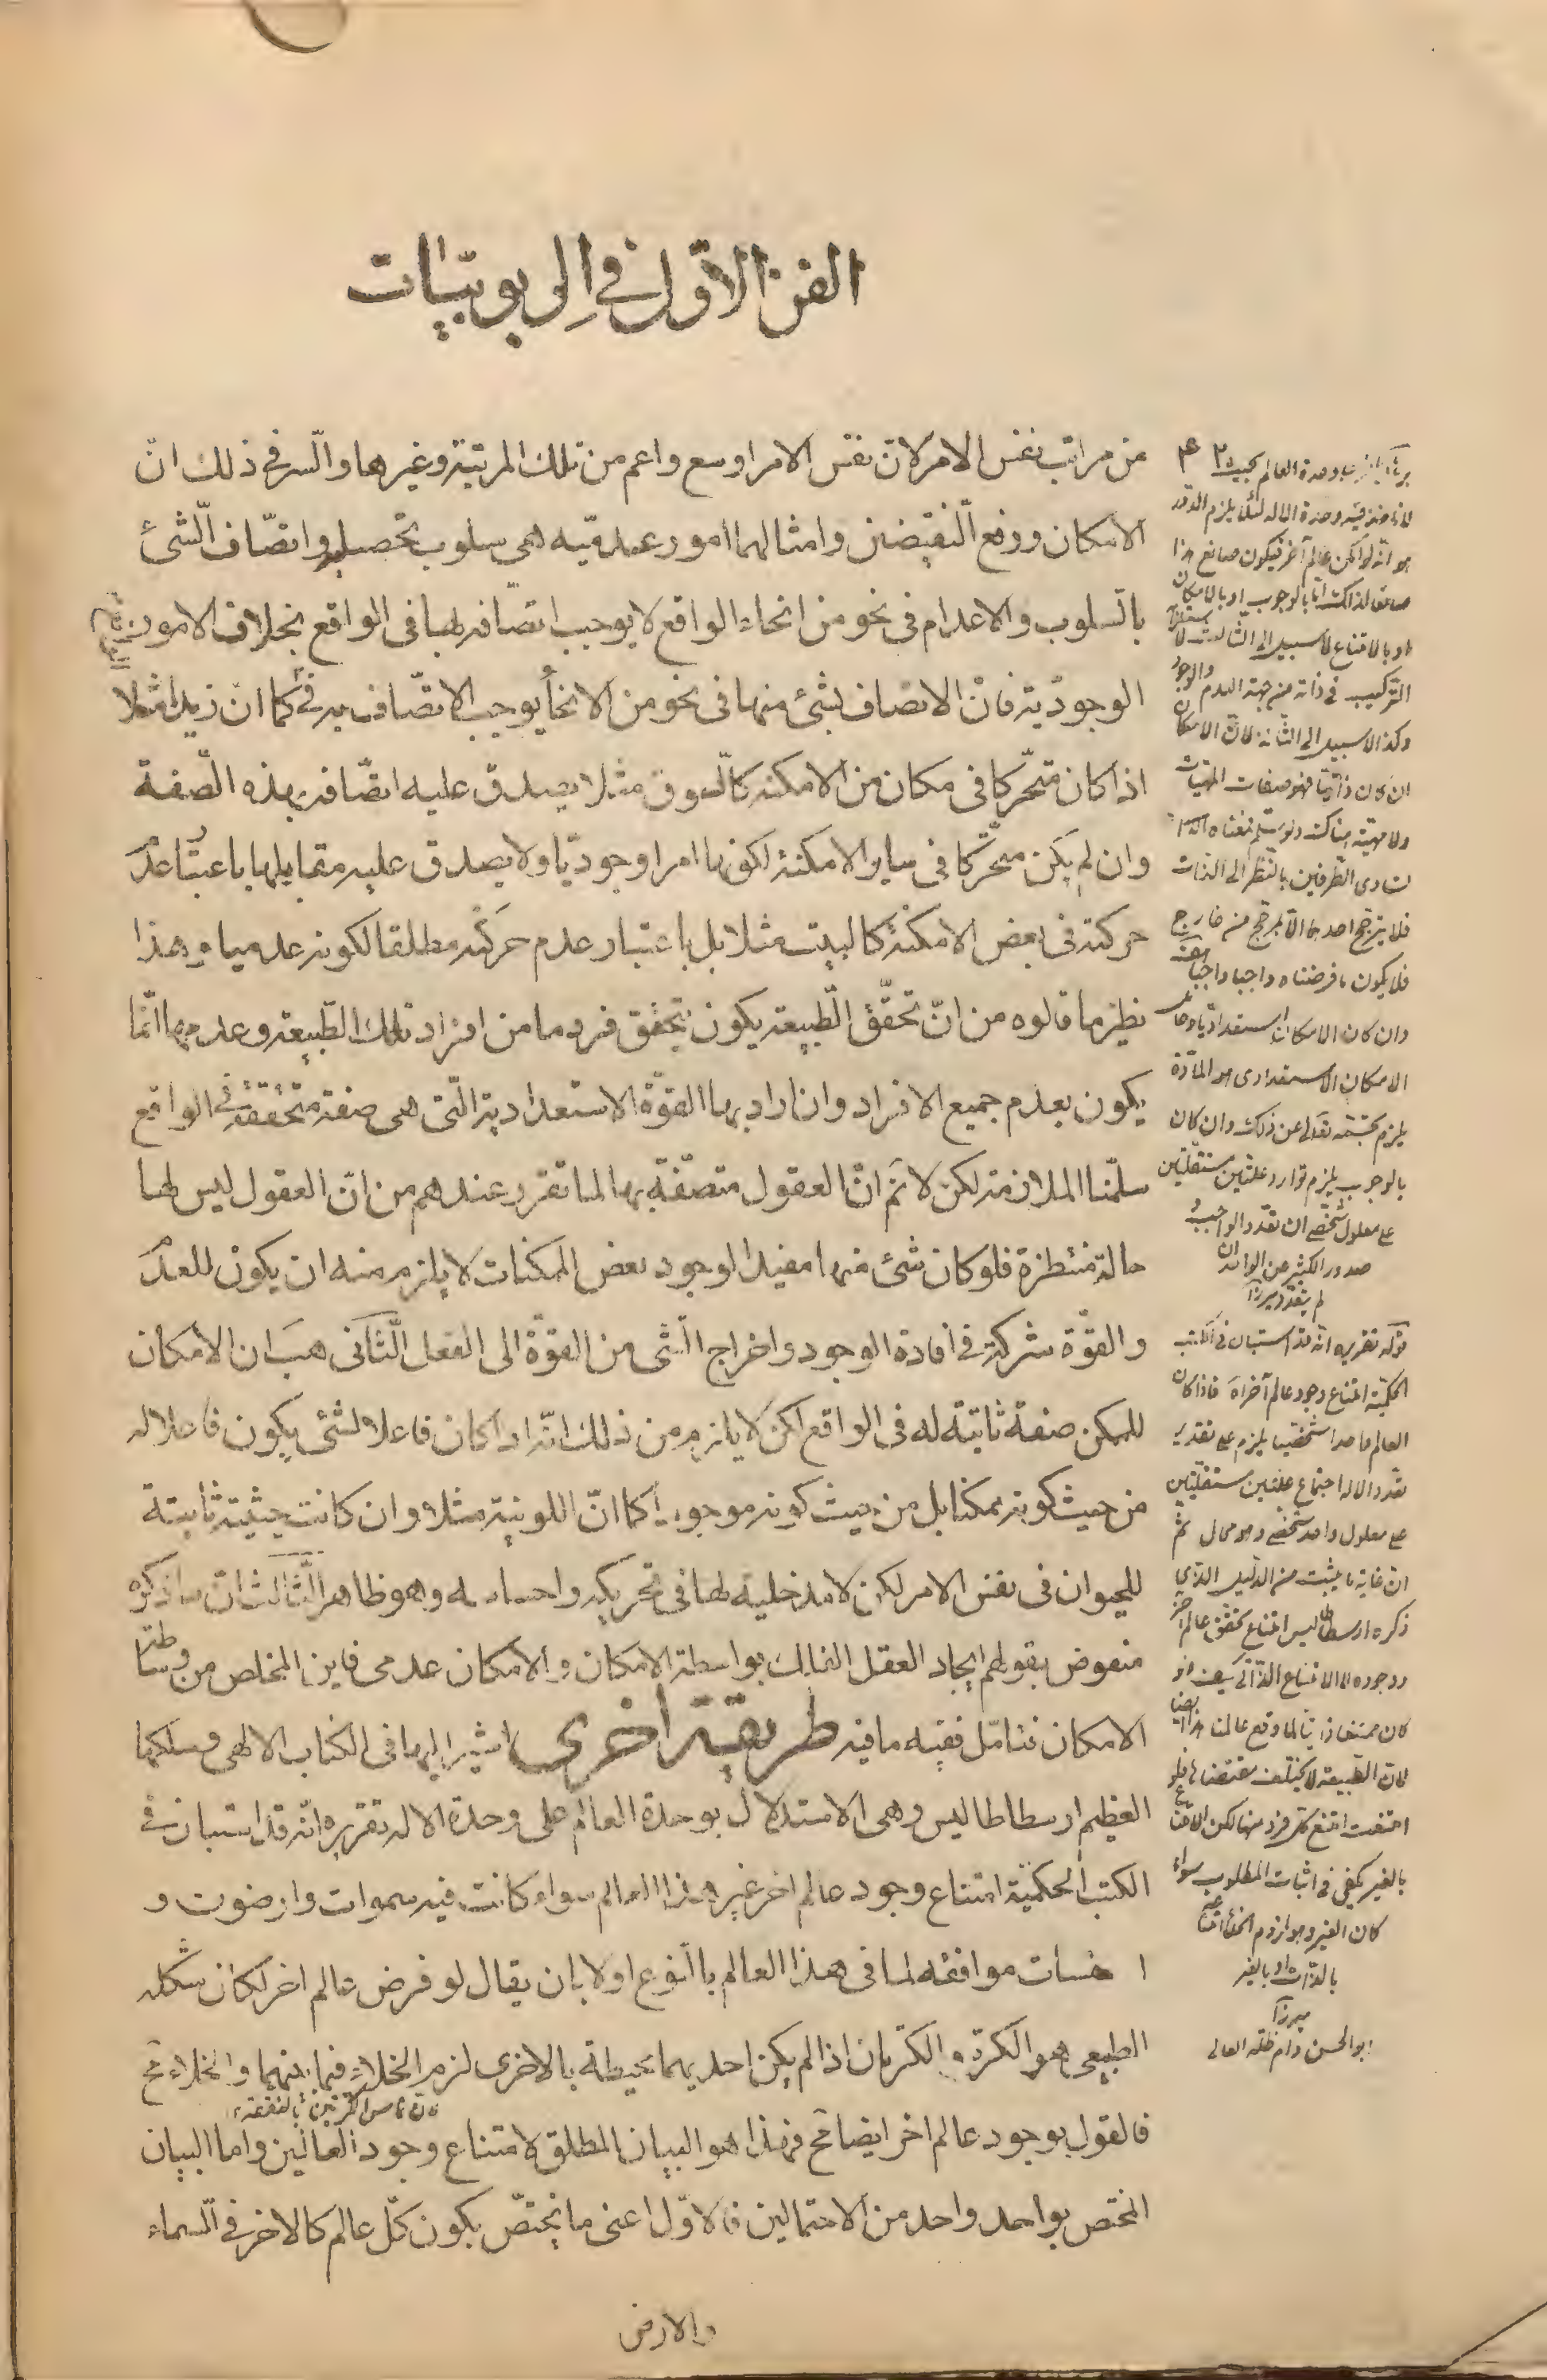 الفن الاوّل في الربوبيّات
من مراتب نفس الامر لانّ نفس الامر اوسع واعم من تلك المرتبة وغيرها والسّر في ذلك انّ
الامكان ورفع النّقيضين وامثالهما امور عدميّه هى سلوب تحصيله واتصّاف الشّئ
بالسّلوب والاعدام فى نحو من انحاء الواقع لا يوجب اتصّافه بها فى الواقع بخلاف الامور
الوجوديّة فانّ الاتصاف بشئ منها فى نحو من الانحاء يوجب الاتصّاف به فيه كما ان زيدا مثلا
اذا كان متحّركا فى مكان من الامكنة كالسّوق مثلا يصدق عليه اتصّافه بهذه الصّفة
وان لم يكن متحّركا فى ساير الامكنة لكونها امرا وجوديّا ولا يصدق عليه مقابلها باعتبار عدم
حركته فى بعض الامكنة كالبيت مثلا بل باعتبار عدم حركته مطلقا لكونه عدميا وهذا
نظير ما قالوه من انّ تحقّق الطّبيعة يكون بتحقق فرد ما من افراد تلك الطّبيعة وعدمها انّما
يكون بعدم جميع الافراد وان اراد بها القوّة الاستعدادية الّتى هى صفة متحققة فى الواقع
سلّمنا الملازمة لكن لا نم انّ العقول متصّفة بها لما تقرر عندهم من انّ العقول ليس لها
حالة منتظرة فلو كان شئ منها مفيدا لوجود بعض الممكنات لا يلزم منه ان يكون للعدم
والقوّة شركة في افادة الوجود واخراج الشّى من القوّة الى الفعل الثّانى هب ان الامكان
للممكن صفة ثابتة له فى الواقع لكن لا يلزم من ذلك انّه اذا كان فاعلا لشئى يكون فاعلا له
من حيث كونه ممكنا بل من حيث كونه موجودا كما انّ اللونية مثلا وان كانت حيثية ثابتة
للحيوان فى نفس الامر لكن لا مدخلية لها فى تحريكه واحساسه وهو ظاهر الثّالث انّ ما ذكره
منقوض بقولهم ايجاد العقل الفلك بواسطة الامكان والامكان عدمى فاين المخلص من وساطة
الامكان فتامّل ففيه ما فيه طريقة اخرى اشير اليها فى الكتاب الالهى وسلكها
العظيم ارسطاطاليس وهى الاستدلال بوحدة العالم على وحدة الاله تقريره انّه قد استبان في
الكتب الحكميّة امتناع وجود عالم اخر غير هذا العالم سواء كانت فيه سموات وارضون و
ا سطقسات موافقة لما فى هذا العالم بالنّوع اولا بان يقال لو فرض عالم اخر لكان شكله
الطبيعى هو الكرة والكرتان اذا لم يكن احديهما محيطة بالاخرى لزم الخلاء فيما بينهما والخلاء مح
فالقول بوجود عالم اخر ايضا مح فهذا هو البيان المطلق لامتناع وجود العالمين واما البيان
المختص بواحد واحد من الاحتمالين فالاوّل اعنى ما يختصّ بكون كلّ عالم كالاخر في السّماء
والارض
هو انّه لو امكن عالم آخر فيكون صانع هذا
التركيب فى ذاته من جهة العدم والوجود
وكذا لا سبيل الى الثانى لانّ الامكان
ان كان ذاتيّا فهو صفات المهيّات
فلا يترجّح احدهما الّا بمرجّح من خارج
فلا يكون ما فرضناه واجبا واجبا
وان كان الامكان استعداديّا
الامكان الاستعدادى هو المادّة
يلزم تجسّمه تعالى عن ذلك وان كان
بالوجوب يلزم توارد علّتين مستقلّتين
على معلول شخصى ان تعدّد الواجب و
صدور الكثير عن الواحد ان
لم يتعدّد ميرزا
قوله تقريره انّه قد استبان فى الكتب
الحكميّة امتناع وجود عالم آخر اه فاذا كان
العالم واحدا شخصيّا يلزم على تقدير
تعدّد الاله اجتماع علّتين مستقلّتين
على معلول واحد شخصى وهو محال ثمّ
انّ غاية ما يثبت من الدّليل الذى
ذكره ارسطاطاليس امتناع تحقّق عالم آخر
كان ممتنعا ذاتيّا لما وقع عالمنا هذا ايضا
لانّ الطّبيعة لا يختلف مقتضاها فلو
امتنعت امتنع كلّ فرد منها لكن الامتناع
بالغير يكفى فى اثبات المطلوب سواء
كان الغير وهو لزوم الخلاء ممتنعا
بالذّات او بالغير
ميرزا
ابو الحسن دام ظلّه العالى